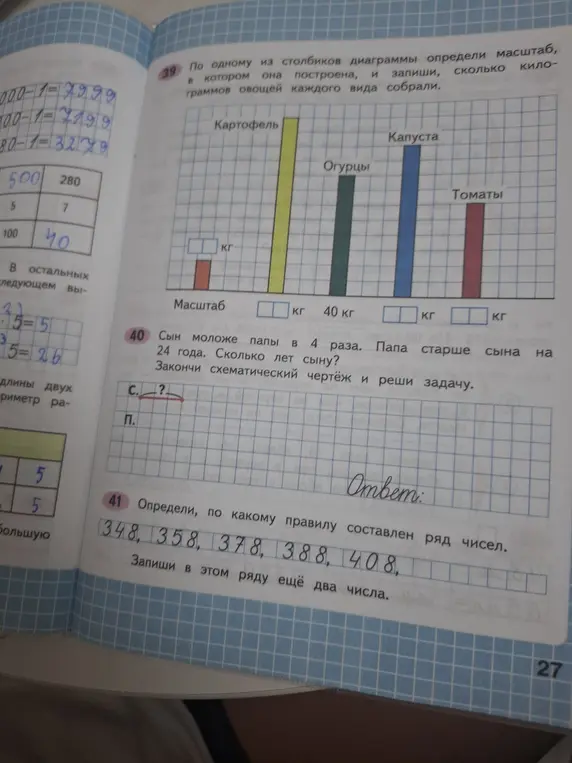 000-1=7999
100-1=7199
80-1=3279
500 280
5 7
100 40
В остальных
ледующем вы-
5=5
5=26
длины двух
риметр ра-
5
5
большую
39 По одному из столбиков диаграммы определи масштаб,
в котором она построена, и запиши, сколько кило-
граммов овощей каждого вида собрали.
Картофель
Капуста
Огурцы
Томаты
кг
Масштаб кг 40 кг кг кг
40 Сын моложе папы в 4 раза. Папа старше сына на
24 года. Сколько лет сыну?
Закончи схематический чертёж и реши задачу.
С. ?
П.
Ответ:
41 Определи, по какому правилу составлен ряд чисел.
348, 358, 378, 388, 408,
Запиши в этом ряду ещё два числа.
27